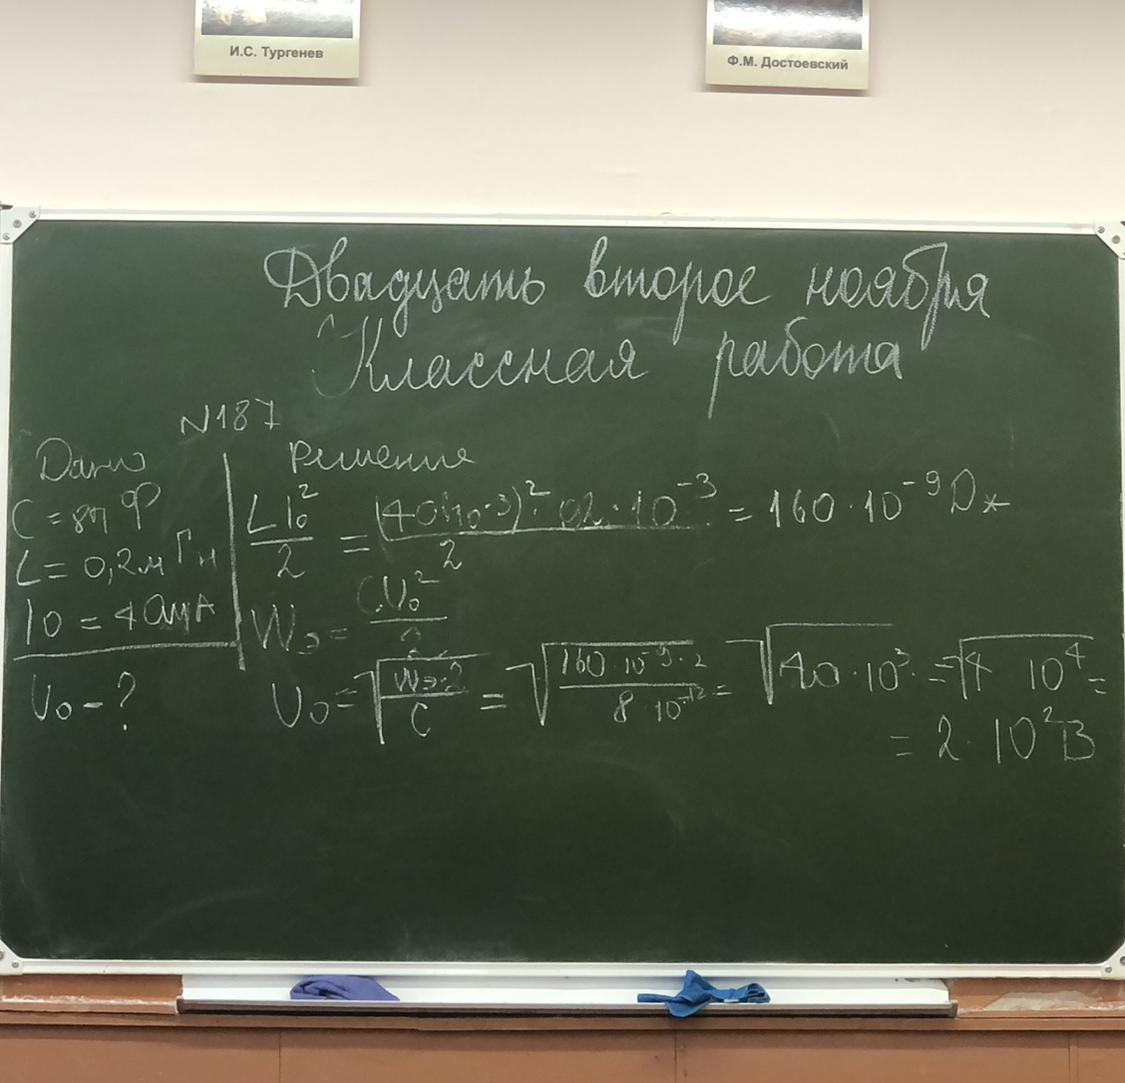 И.С. Тургенев
Ф.М. Достоевский
Двадцать второе ноября
Классная работа
N187
Дано
C = 8п Ф
L = 0,2м Гн
I0 = 40мА
U₀ - ?
Решение
LI₀²/2 = (40·10⁻³)²· 02·10⁻³/2 = 160·10⁻⁹ Дж
Wэ = CU₀²/2
U₀ = √(Wэ·2/C) = √(160·10⁻⁹·2/8·10⁻¹²) = √(40·10³) = √(4 10⁴) =
= 2·10²В